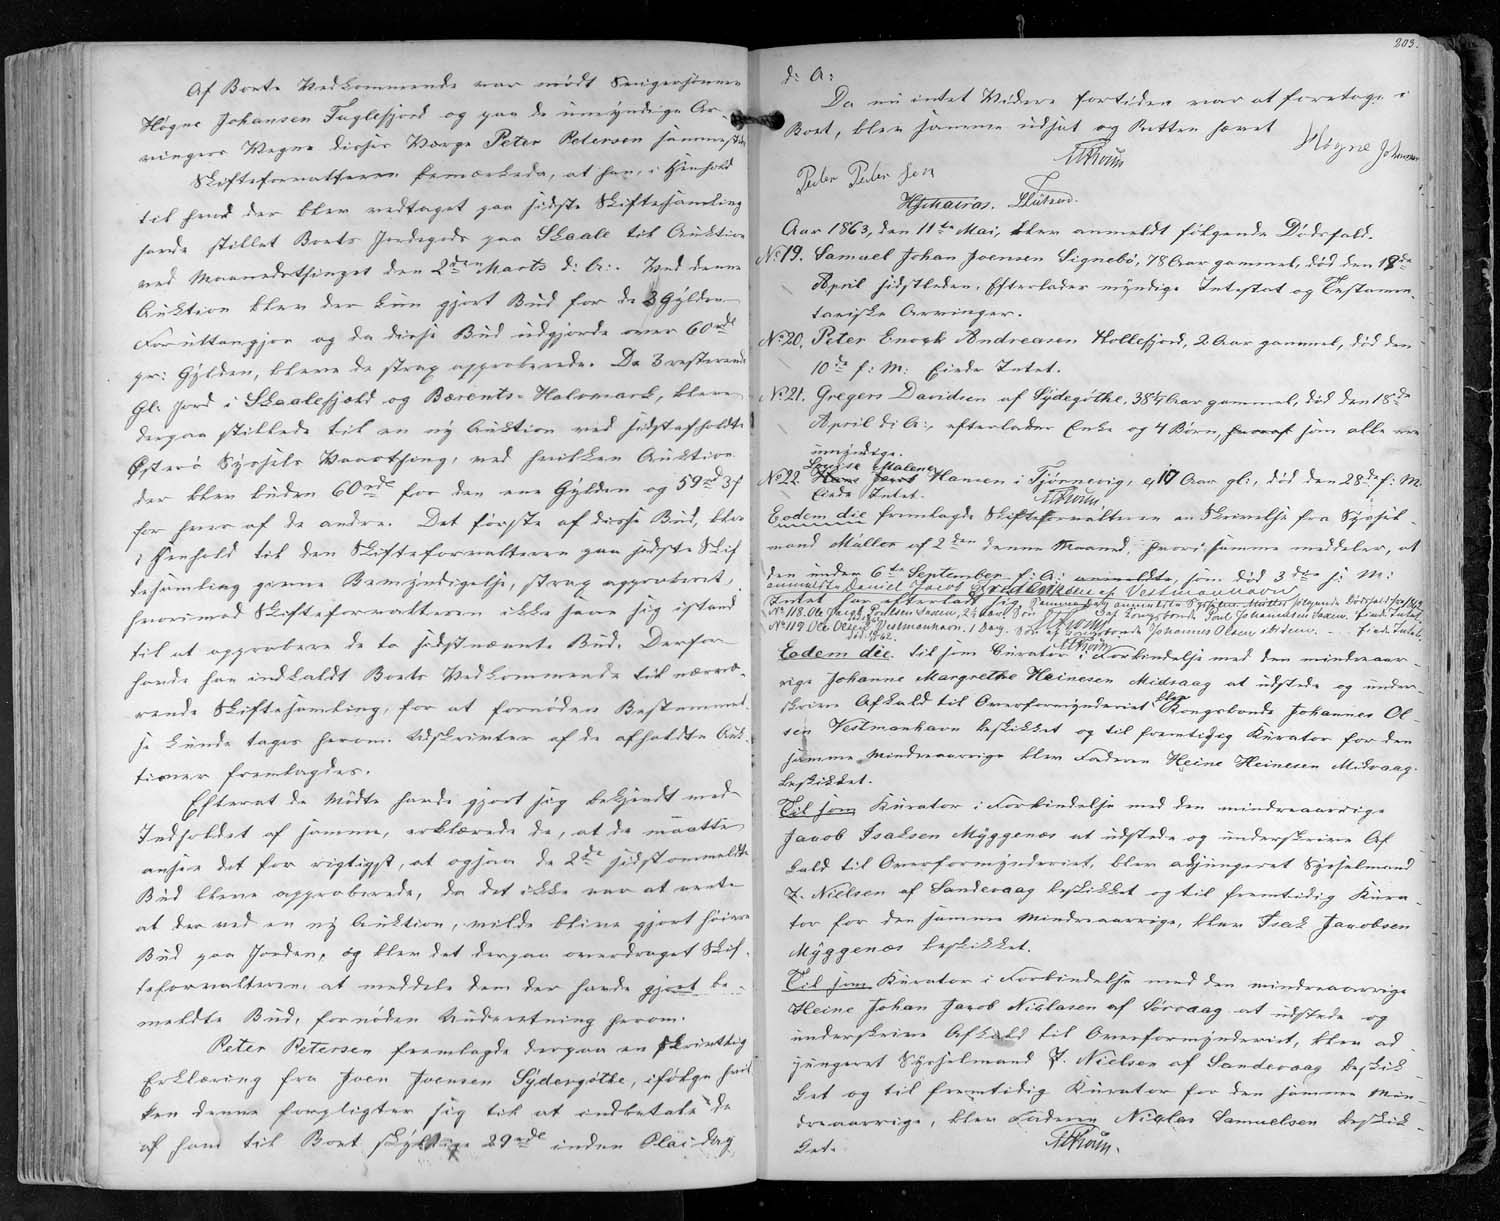 Af Boets Vedkommende var mødt Svigersønnen
Høgne Johansen Fuglefjord og paa de umyndige Ar-
vingers Vegne disses Værge Peter Petersen sammesteds
Skifteforvalteren bemærkede, at han, i Henhold
til hvad der blev vedtaget paa sidste Skiftesamling
havde stillet Boets Jordegods paa Skaale til Auktion
ved Maanedsthinget den 2den Marts d: A:. Ved denne
Auktion blev der kun gjort Bud for de 3 Gylden
og da disse Bud udgjorde over 60rd
pr: Gylden, bleve de strax approberede. De 3 resterende
Gl. Jord i Skaalefjæld og Bærents-Halvmark, bleve
derpaa stillede til en ny Auktion ved sidstafholdte
Østerø Syssels Vaarthing, ved hvilken Auktion
der blev buden 60rd for den ene Gylden og 59rd 3f
for hver af de andre. Det første af disse Bud, blev
i Henhold til den Skifteforvalteren paa sidste Skif
tesamling givne Bemyndigelse, strax approberet,
hvorimod Skifteforvalteren ikke saae sig istand
til at approbere de to sidstnævnte Bud. Derfor
havde han indkaldt Boets Vedkommende til nærvæ-
rende Skiftesamling, for at fornøden Bestemmel-
se kunde tages herom. Udskrivter af de afholdte Auk-
tioner fremlagdes.
Efterat de Mødte havde gjort sig bekjendt med
Indholdet af samme, erklærede de, at de maatte
ansee det for rigtigst, at ogsaa de 2de sidstommeldte
Bud bleve approberede, da det ikke var at vente
at der ved en ny Auktion, vilde blive gjort høiere
Bud paa Jorden, og blev det derpaa overdraget Skif-
teforvalteren, at meddele dem der havde gjort be-
meldte Bud, fornøden Underretning herom.
Peter Petersen fremlagde derpaa en skrivtlig
Erklæring fra Joen Joensen Sydergøthe, ifølge hvil
ken denne forpligter sig til at indbetale de
af ham til Boet skyldige 29rd inden Olai dag
203.
d: A:
Da nu intet Videre fortiden var at foretage i
Boet, blev samme udsat og Retten hævet
Høgne Johansen
Peder Peder sen
HJMatras.
Aar 1863, den 11te Mai, blev anmeldt følgende Dødsfald.
No 19. Samuel Johan Joensen Signebø, 78 Aar gammel, død den 18de
April sidstleden. Efterlader myndige Intestat og Testamen-
tariske Arvinger.
No 20. Peter Enogk Andreasen Kollefjord, 2 Aar gammel, død den
10de f: M: Eiede Intet.
No 21. Gregers Davidsen af Sydegøthe, 38 1/4 Aar gammel, død den 18de
April d: A:, efterlader Enke og 4 Børn, hvoraf som alle ere
umyndige.
Louise Malene
No 22. Hansen i Tjørnevig, 17 Aar gl:, død den 28de f: M
Eiede Intet.
Eodem die fremlagde Skifteforvalteren en Skrivelse fra Syssel-
mand Müller af 2den denne Maaned, hvori samme meddeler, at
den under 6te September f: A: anmeldte, som død 3die s: M:
anmeldte Daniel Jacob Frederiksen af Vestmannhavn
Intet har efterladt sig. Samme Dag anmeldte Sysselm. Müller følgende Dødsfald for 1862
No 118. Ole Jacob Poulsen Saxen, 2 1/2 Aar. Søn af Kongsbonde Poul Johannesen Saxen. Eiede Intet.
No 119 Ole Olsen Vestmanhavn. 1 Dag. Søn af Kongsbonde Johannes Olsen ibidem. - Eiede Intet.
død 1862.
Eodem die. Til som Curator i Forbindelse med den mindreaar-
rige Johanne Margrethe Heinesen Midvaag at udstede og under-
skrive Afkald til Overformynderiet blev Kongsbonde Johannes Ol-
sen Vestmanhavn beskikket og til fremtidig Kurator for den
samme Mindreaarrige blev Faderen Heine Heinesen Midvaag
beskikket.
Til som Kurator i Forbindelse med den mindreaarrige
Jacob Isaksen Myggenæs at udstede og underskrive Af
kald til Overformynderiet, blev adjungeret Sysselmand
Z. Nielsen af Sandevaag beskikket og til fremtidig Kura-
tor for den samme Mindreaarrige, blev Isak Jacobsen
Myggenæs beskikket.
Til som Kurator i Forbindelse med den mindreaarrige
Heine Johan Jacob Niclasen af Sørvaag at udstede og
underskrive Afkald til Overformynderiet, blev ad
jungeret Sysselmand Z. Nielsen af Sandevaag beskik-
ket og til fremtidig Kurator for den samme Min-
dreaarrige, blev Faderen Niclas Samuelsen beskik-
ket.